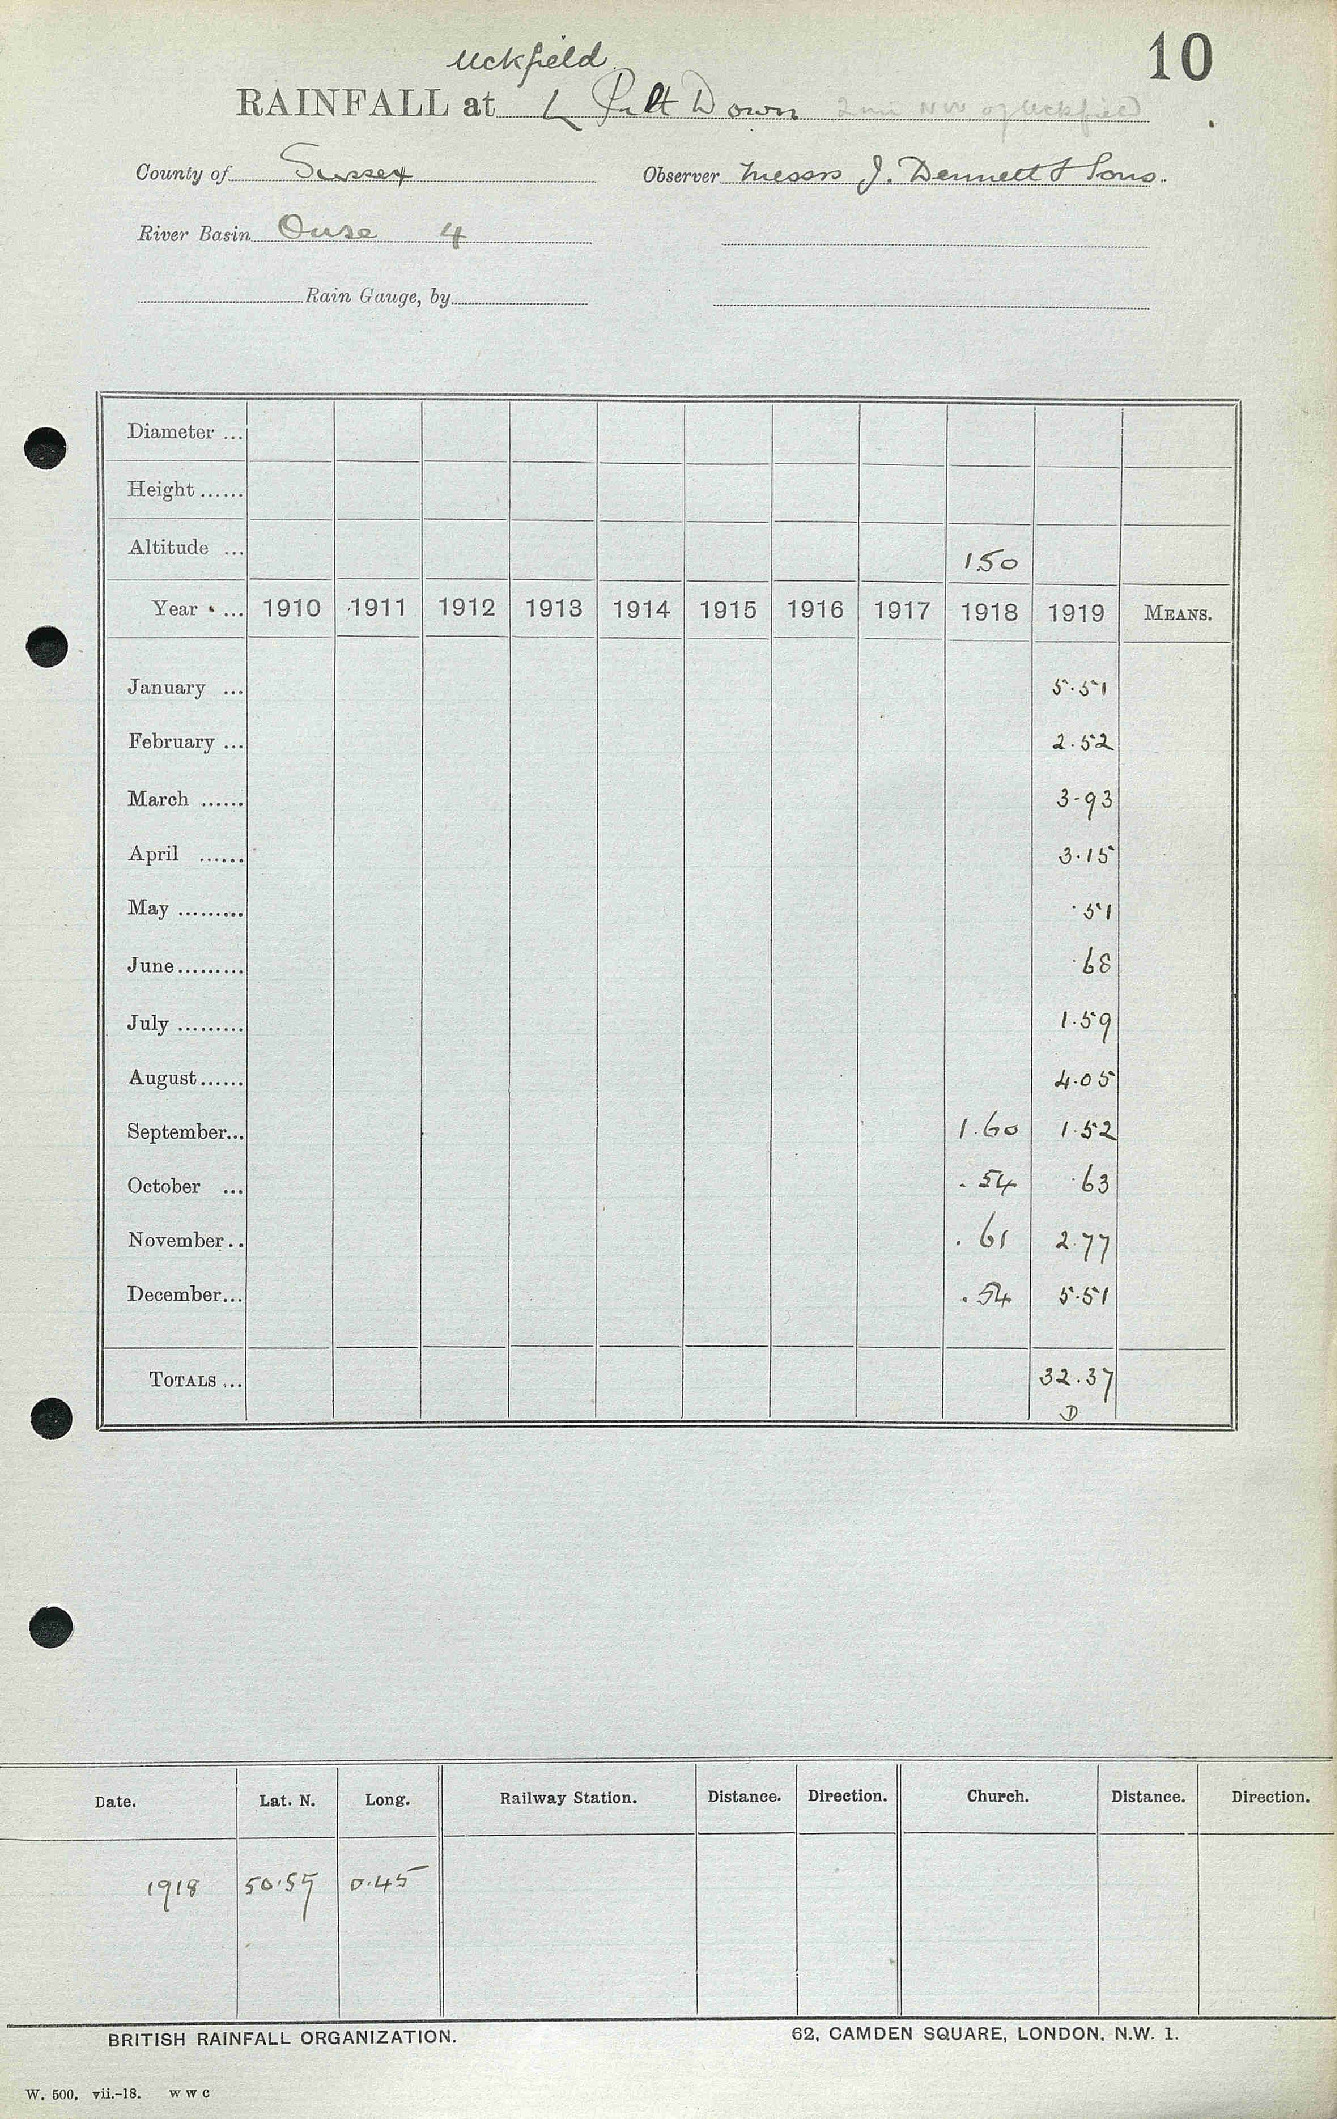 10
Uckfield
RAINFALL at Pilt Down 2 mi NW of Uckfield
County of Sussex Observer Messrs J. Dennett & Sons.
River Basin Ouse 4
Rain Gauge, by
Diameter ...
Height ......
Altitude ... 150
Year ... 1910 1911 1912 1913 1914 1915 1916 1917 1918 1919 MEANS.
January ... 5.51
February ... 2.52
March ...... 3.93
April ...... 3.15
May ......... .51
June ......... .68
July ......... 1.59
August ...... 4.05
September... 1.60 1.52
October ... .54 .63
November .. .61 2.77
December... .54 5.51
TOTALS ... 32.37
D
Date. Lat. N. Long. Railway Station. Distance. Direction. Church. Distance. Direction.
1918 50.59 0.45
BRITISH RAINFALL ORGANIZATION. 62, CAMDEN SQUARE, LONDON, N.W. 1.
W. 500. vii.-18. w w c